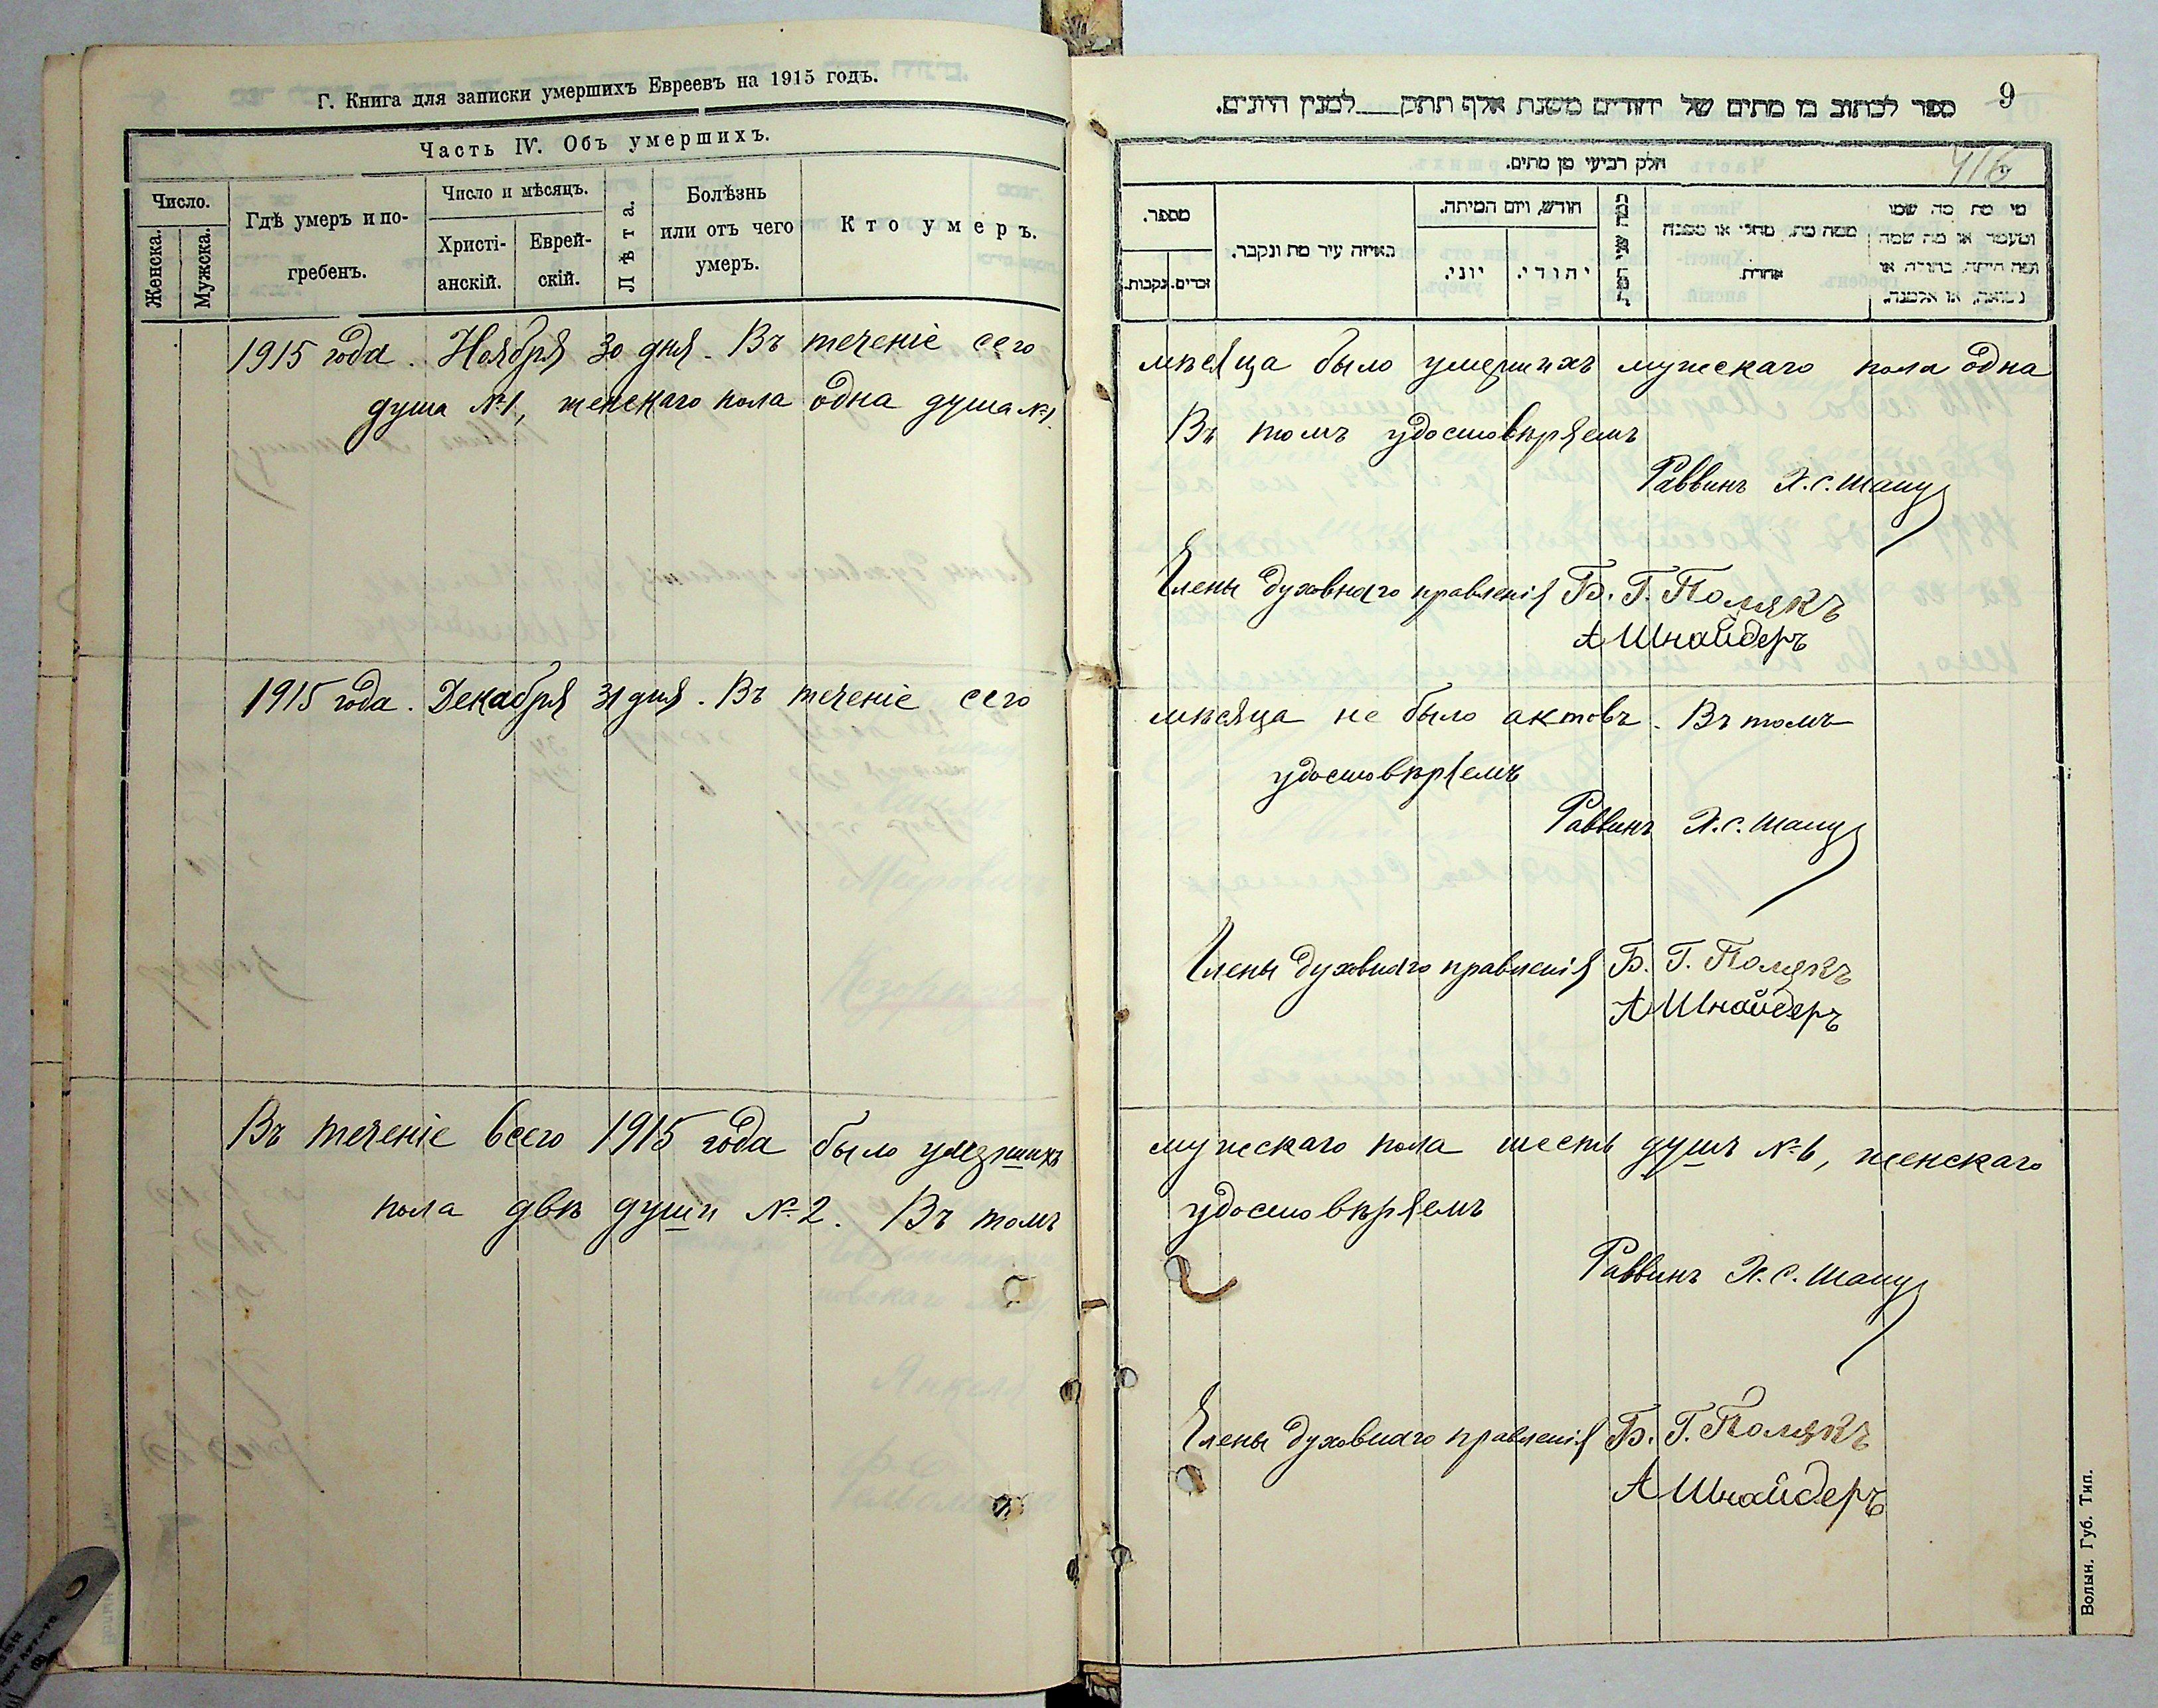 Г. Книга для записки умершихъ Евреевъ на 1915 годъ.
Часть IV. Объ умершихъ.
Число.
Женска.
Мужска.
Гдѣ умеръ и по-
гребенъ.
Число и мѣсяцъ.
Христі-
анскій.
Еврей-
скій.
Лѣта.
Болѣзнь
или отъ чего
умеръ.
Кто умеръ.
1915 года. Ноября 30 дня. Въ теченіе сего
душа №1, женскаго пола одна душа №1.
1915 года. Декабря 31 дня. Въ теченіе сего
Въ теченіе всего 1915 года было умершихъ
пола двѣ души №2. Въ томъ
9
ספר לכתוב מן מתים של יהודים משנת אלף תתק___למנין היונים.
חלק רביעי מן מתים.
מספר.
זכרים.
נקבות.
באיזה עיר מת ונקבר.
חודש, ויום המיתה.
יוני.
יהודי.
ממה מת, מחלי או מסבה
אחרת.
מי מת מה שמו
ומעמד או מה שמה
ומה היתה, בתולה או
נשואה, או אלמנה.
мѣсяца было умершихъ мужскаго пола одна
Въ томъ удостовѣряемъ
Раввинъ Х. С. Шапу
Члены духовнаго правленія Б. Г. Полякъ
А Шнайдеръ
мѣсяца не было актовъ. Въ томъ
удостовѣряемъ
Раввинъ Х. С. Шапу
Члены духовнаго правленія Б. Г. Полякъ
А Шнайдеръ
мужскаго пола шесть душъ №6, женскаго
удостовѣряемъ
Раввинъ Х. С. Шапу
Члены духовнаго правленія Б. Г. Полякъ
А Шнайдеръ
Волын. Губ. Тип.